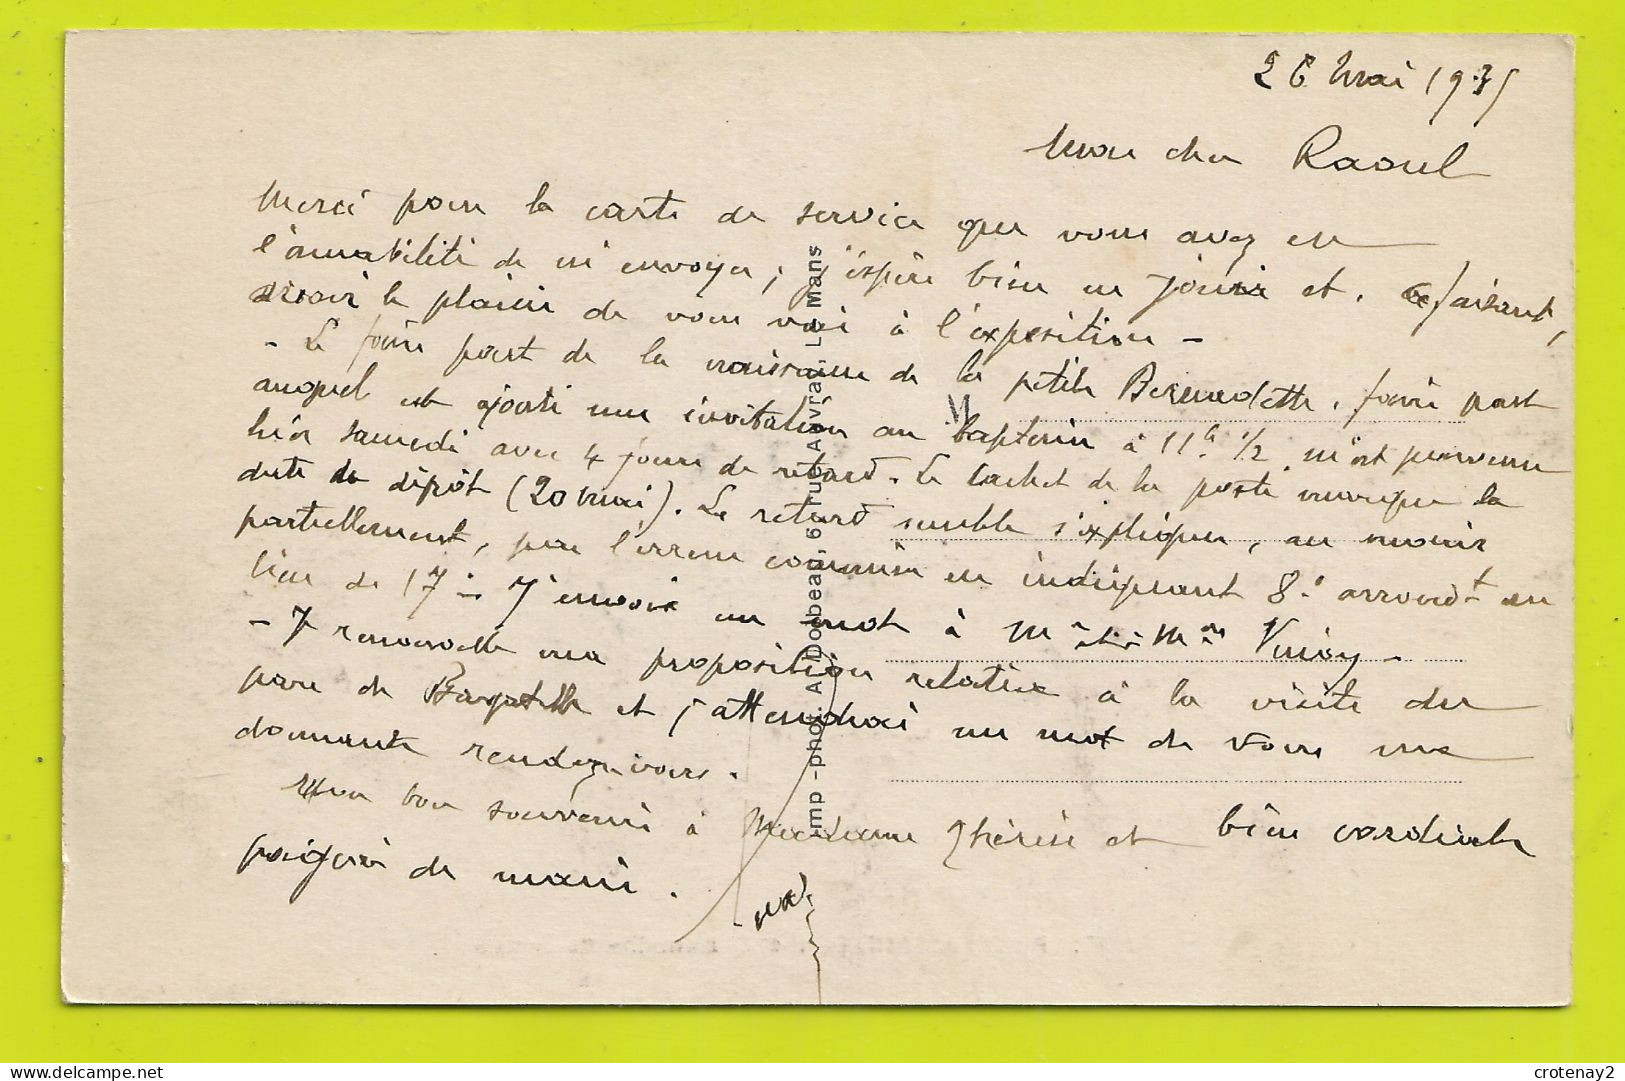 26 Mai 1931
Mon cher Raoul
Merci pour la carte de service que vous avez eu
l'amabilité de m'envoyer, j'espère bien en jouir et, ce faisant,
avoir le plaisir de vous voir à l'exposition -
- Le faire part de la naissance de la petite Bernadette, faire part
auquel est ajouté une invitation au baptême à 11h 1/2, m'est parvenu
hier samedi avec 4 jours de retard. Le cachet de la poste marque la
date de dépôt (20 mai). Le retard semble s'expliquer, au moins
partiellement, par l'erreur commise en indiquant 8e arrondt au
lieu de 17 - J'envoie un mot à Mr et Mme
- Je renouvelle ma proposition relative à la visite du
parc de Bagatelle et j'attendrai un mot de vous me
donnant rendez-vous.
Mon bon souvenir à Madame Thérèse et bien cordiale
poignée de main.
Imp.-phot. A. Dolbeau, 6, rue Auvray, Le Mans
crotenay2